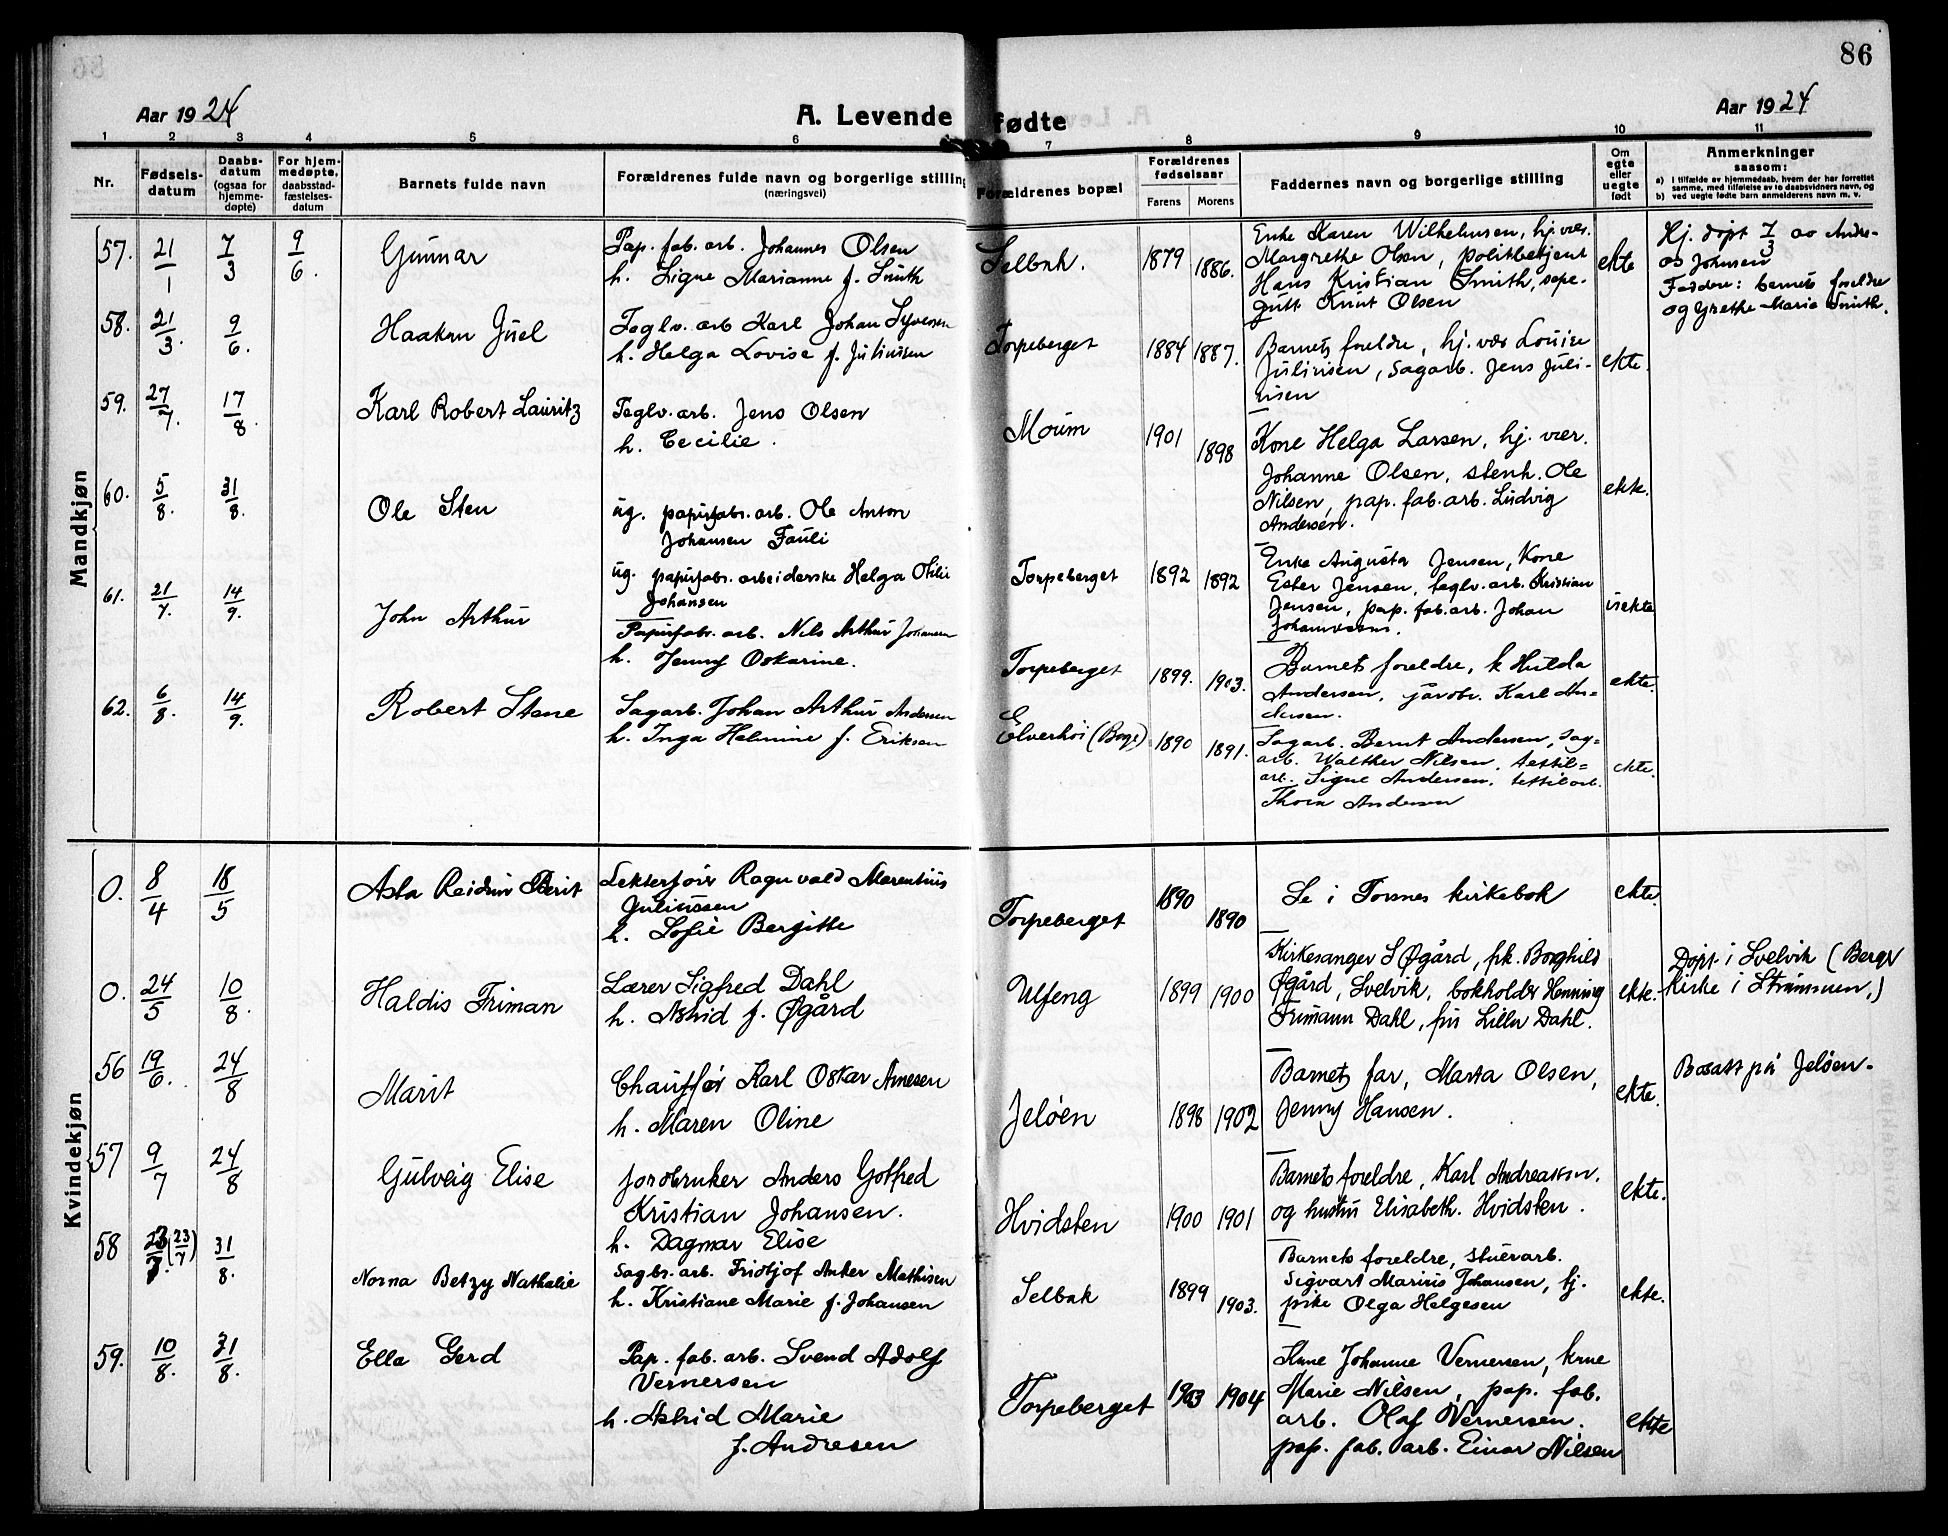 86
Aar 1924
A. Levende fødte
Aar 1924
1 2 3 4 5 6 7 8 9 10 11
Nr.
Fødsels-
datum
Daabs-
datum
(ogsaa for
hjemme-
døpte)
For hjem-
medøpte,
daabsstad-
fæstelses-
datum
Barnets fulde navn
Forældrenes fulde navn og borgerlige stilling
(næringsvei)
Forældrenes bopæl
Forældrenes
fødselsaar
Farens Morens
Faddernes navn og borgerlige stilling
Om
egte
eller
uegte
født
Anmerkninger
saasom:
a) i tilfælde av hjemmedaab, hvem der har forrettet
samme, med tilføielse av to daabsvidners navn, og
b) ved uegte fødte barn anmelderens navn m. v.
Mandkjøn
57. 21/1 7/3 9/6. Gunnar
Pap. fab. arb. Johannes Olsen
h. Signe Marianne f. Smith
Selbak. 1879 1886.
Enke Karen Wilhelmsen, hj. væs.
Margrethe Olsen, politibetjent
Hans Kristian Smith, sope-
gutt Knut Olsen
ekte
Hj. døpt 7/3 av Andre-
as Johnsen
Faddere: barnets foreldre
og Grethe Marie Smith.
58. 21/3. 9/6. Haakon Juel
Teglv. arb Karl Johan Syversen
h. Helga Lovise f. Juliussen
Torpeberget 1884 1887.
Barnets foreldre, hj. vær Louise
Juliussen, Sagarb. Jens Juli-
ussen
ekte.
59. 27/7. 17/8. Karl Robert Lauritz
Teglv. arb. Jens Olsen
h. Cecilie.
Moum 1901 1898
Kone Helga Larsen, hj. vær.
Johanne Olsen, stenh. Ole
Nilsen, pap. fab. arb. Ludvig
Andersen.
ekte.
60. 5/8. 31/8. Ole Sten
ug. papirfabr. arb. Ole Anton
Johansen Fauli
ug. papirfabr. arbeiderske Helga Otilie
Johansen
Torpeberget 1892 1892
Enke Augusta Jensen, Kone
Ester Jensen, teglv. arb. Kristian
Jensen, pap. fab. arb. Johan

uekte
61. 21/7. 14/9. John Arthur
Papirfabr. arb. Nils Arthur Johansen
h. Jenny Oskarine.
Torpeberget 1899. 1903.
Barnets foreldre, k Hulda
Andersen, Karl An-
dersen.
ekte.
62. 6/8. 14/9. Robert Stene
Sagarb. Johan Arthur Andersen
h. Inga Helmine f. Eriksen
Elverhøi (Borge) 1890 1891.
Sagarb. Bernt Andersen, sag-
arb. Walther Nilsen, textil-
arb. Signe Andersen, textilarb.
Thora Andersen
ekte.
Kvindekjøn
0. 8/4 18/5 Asta Reidun Berit
Lekterfør Ragnvald Marentius
Juliussen
h. Sofie Bergitte
Torpeberget 1890 1890
Se i Torsnes kirkebok
ekte.
0. 24/5 10/8. Haldis Friman
Lærer Sigfred Dahl
h. Astrid f. Øgård
Ulfeng 1899 1900
Kirkesanger S Øgård, frk. Borghild
Øgård, Svelvik, bokholder Henning
Frimann Dahl, fru Lilla Dahl.
ekte.
Døpt i Svelvik (Berger
kirke i Strømmen.)
56 19/6. 24/8 Marit
Chauffør Karl Oskar Arnesen
h. Maren Oline
Jeløen 1898 1902
Barnets far, Marta Olsen,
Jenny Hansen.
ekte.
Bosatt på Jeløen.
57 9/7 24/8 Gulveig Elise
Jordbruker Anders Gotfred
Kristian Johansen.
h. Dagmar Elise
Hvidsten 1900 1901
Barnets foreldre, Karl Andreassen.
og hustru Elisabeth. Hvidsten.
ekte.
58 23/7. (23/7) 31/8. Norna Betzy Nathalie
Sagbr. arb. Fridtjof Anker Mathisen
h. Kristiane Marie f. Johansen
Selbak 1899 1903.
Barnets foreldre, stuerarb.
Sigvart Marius Johansen, hj.
pike Olga Helgesen
ekte.
59. 10/8. 31/8. Ella Gerd
Pap. fab. arb. Svend Adolf
Vernersen
h. Astrid Marie
f. Andresen
Torpeberget 1903 1904
Kone Johanne Vernersen, kone
Marie Nilsen, pap. fab.
arb. Olaf Vernersen.
pap. fab. arb. Einar Nilsen
ekte